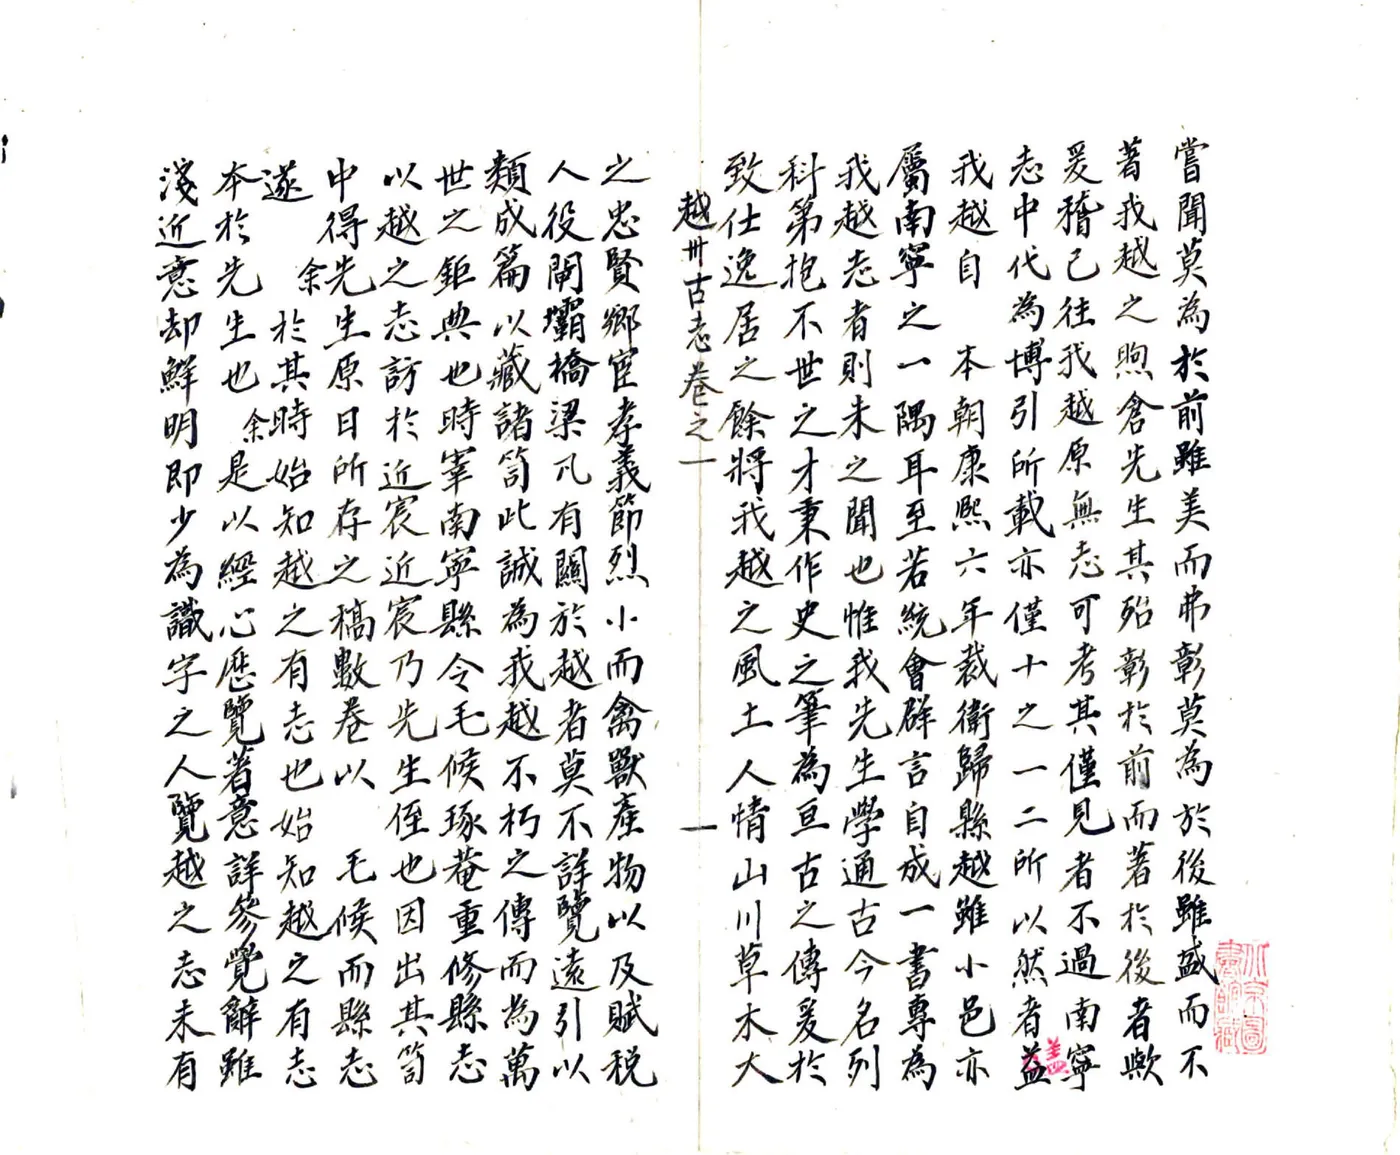 嘗聞莫為於前雖美而弗彰莫為於後雖盛而不
著我越之煦倉先生其殆彰於前而著於後者歟
爰稽已往我越原無志可考其僅見者不過南寧
志中代為博引所載亦僅十之一二所以然者益
蓋
我越自 本朝康熙六年裁衛歸縣越雖小邑亦
屬南寧之一隅耳至若統會群言自成一書專為
我越志者則未之聞也惟我先生學通古今名列
科第抱不世之才秉作史之筆為亘古之傳爰於
致仕逸居之餘將我越之風土人情山川草木大
越卅古志卷之一
一
之忠賢鄉宦孝義節烈小而禽獸產物以及賦税
人役閘壩橋梁凡有關於越者莫不詳覽遠引以
類成篇以藏諸笥此誠為我越不朽之傳而為萬
世之鉅典也時宰南寧縣令毛候琢菴重修縣志
以越之志訪於近宸近宸乃先生侄也因出其笥
中得先生原日所存之稿數卷以 毛候而縣志
遂 余於其時始知越之有志也始知越之有志
本於先生也 余是以經心歷覽著意詳參覺辭雖
淺近意却鮮明即少為識字之人覽越之志未有